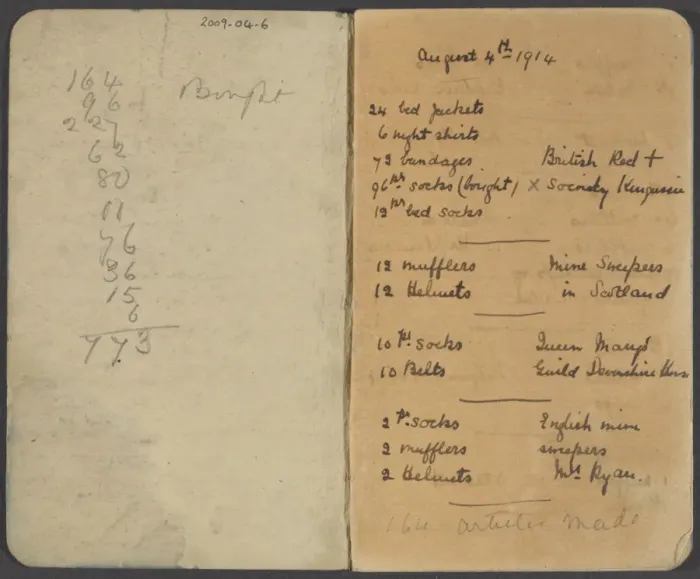 2009-04-6
164
Bought
96
227
62
80
11
76
36
15
6
773
August 4th 1914
24 bed jackets
6 night shirts
72 bandages British Red +
96 prs socks (bought) X Society Kingussie
12 pr bed socks
12 mufflers Mine Sweepers
12 Helmets in Scotland
10 prs socks Queen Mary's
10 Belts Guild Devonshire House
2 prs socks English mine
2 mufflers sweepers
2 Helmets Mrs Ryan.
164 articles made